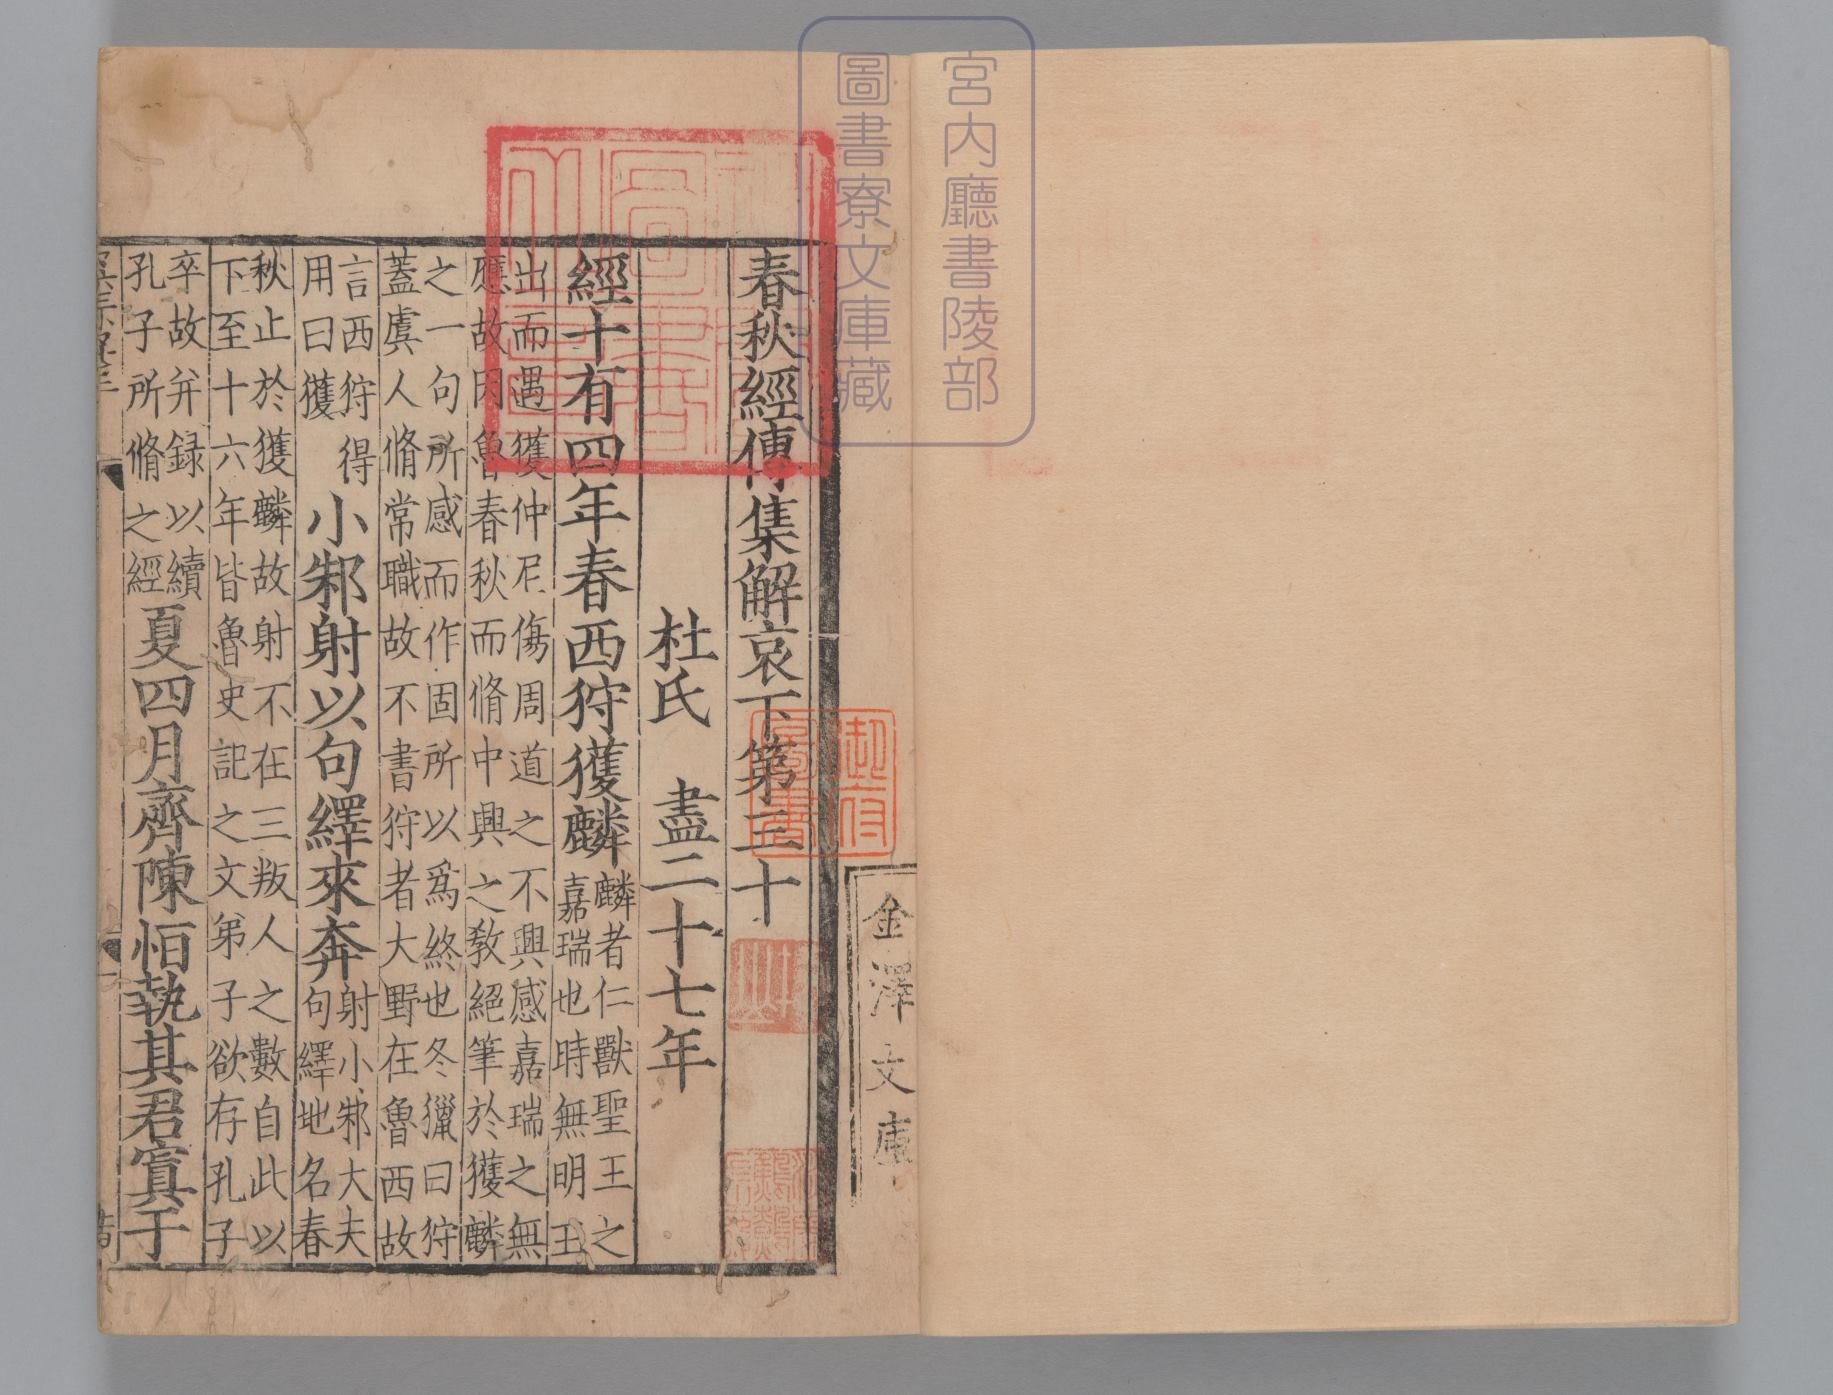 宮内廳書陵部
圖書寮文庫藏
金澤文庫
御府
圖書
春秋經傳集解哀下第三十
杜氏　盡二十七年
經十有四年春西狩獲麟
麟者仁獸聖王之
嘉瑞也時無明王
出而遇獲仲尼傷周道之不興感嘉瑞之無
應故因魯春秋而脩中興之敎絕筆於獲麟
之一句所感而作固所以爲終也冬獵曰狩
蓋虞人脩常職故不書狩者大野在魯西故
言西狩得
用曰獲
小邾射以句繹來奔
射小邾大夫
句繹地名春
秋止於獲麟故射不在三叛人之數自此以
下至十六年皆魯史記之文弟子欲存孔子
卒故并録以續
孔子所脩之經
夏四月齊陳恒執其君寘于